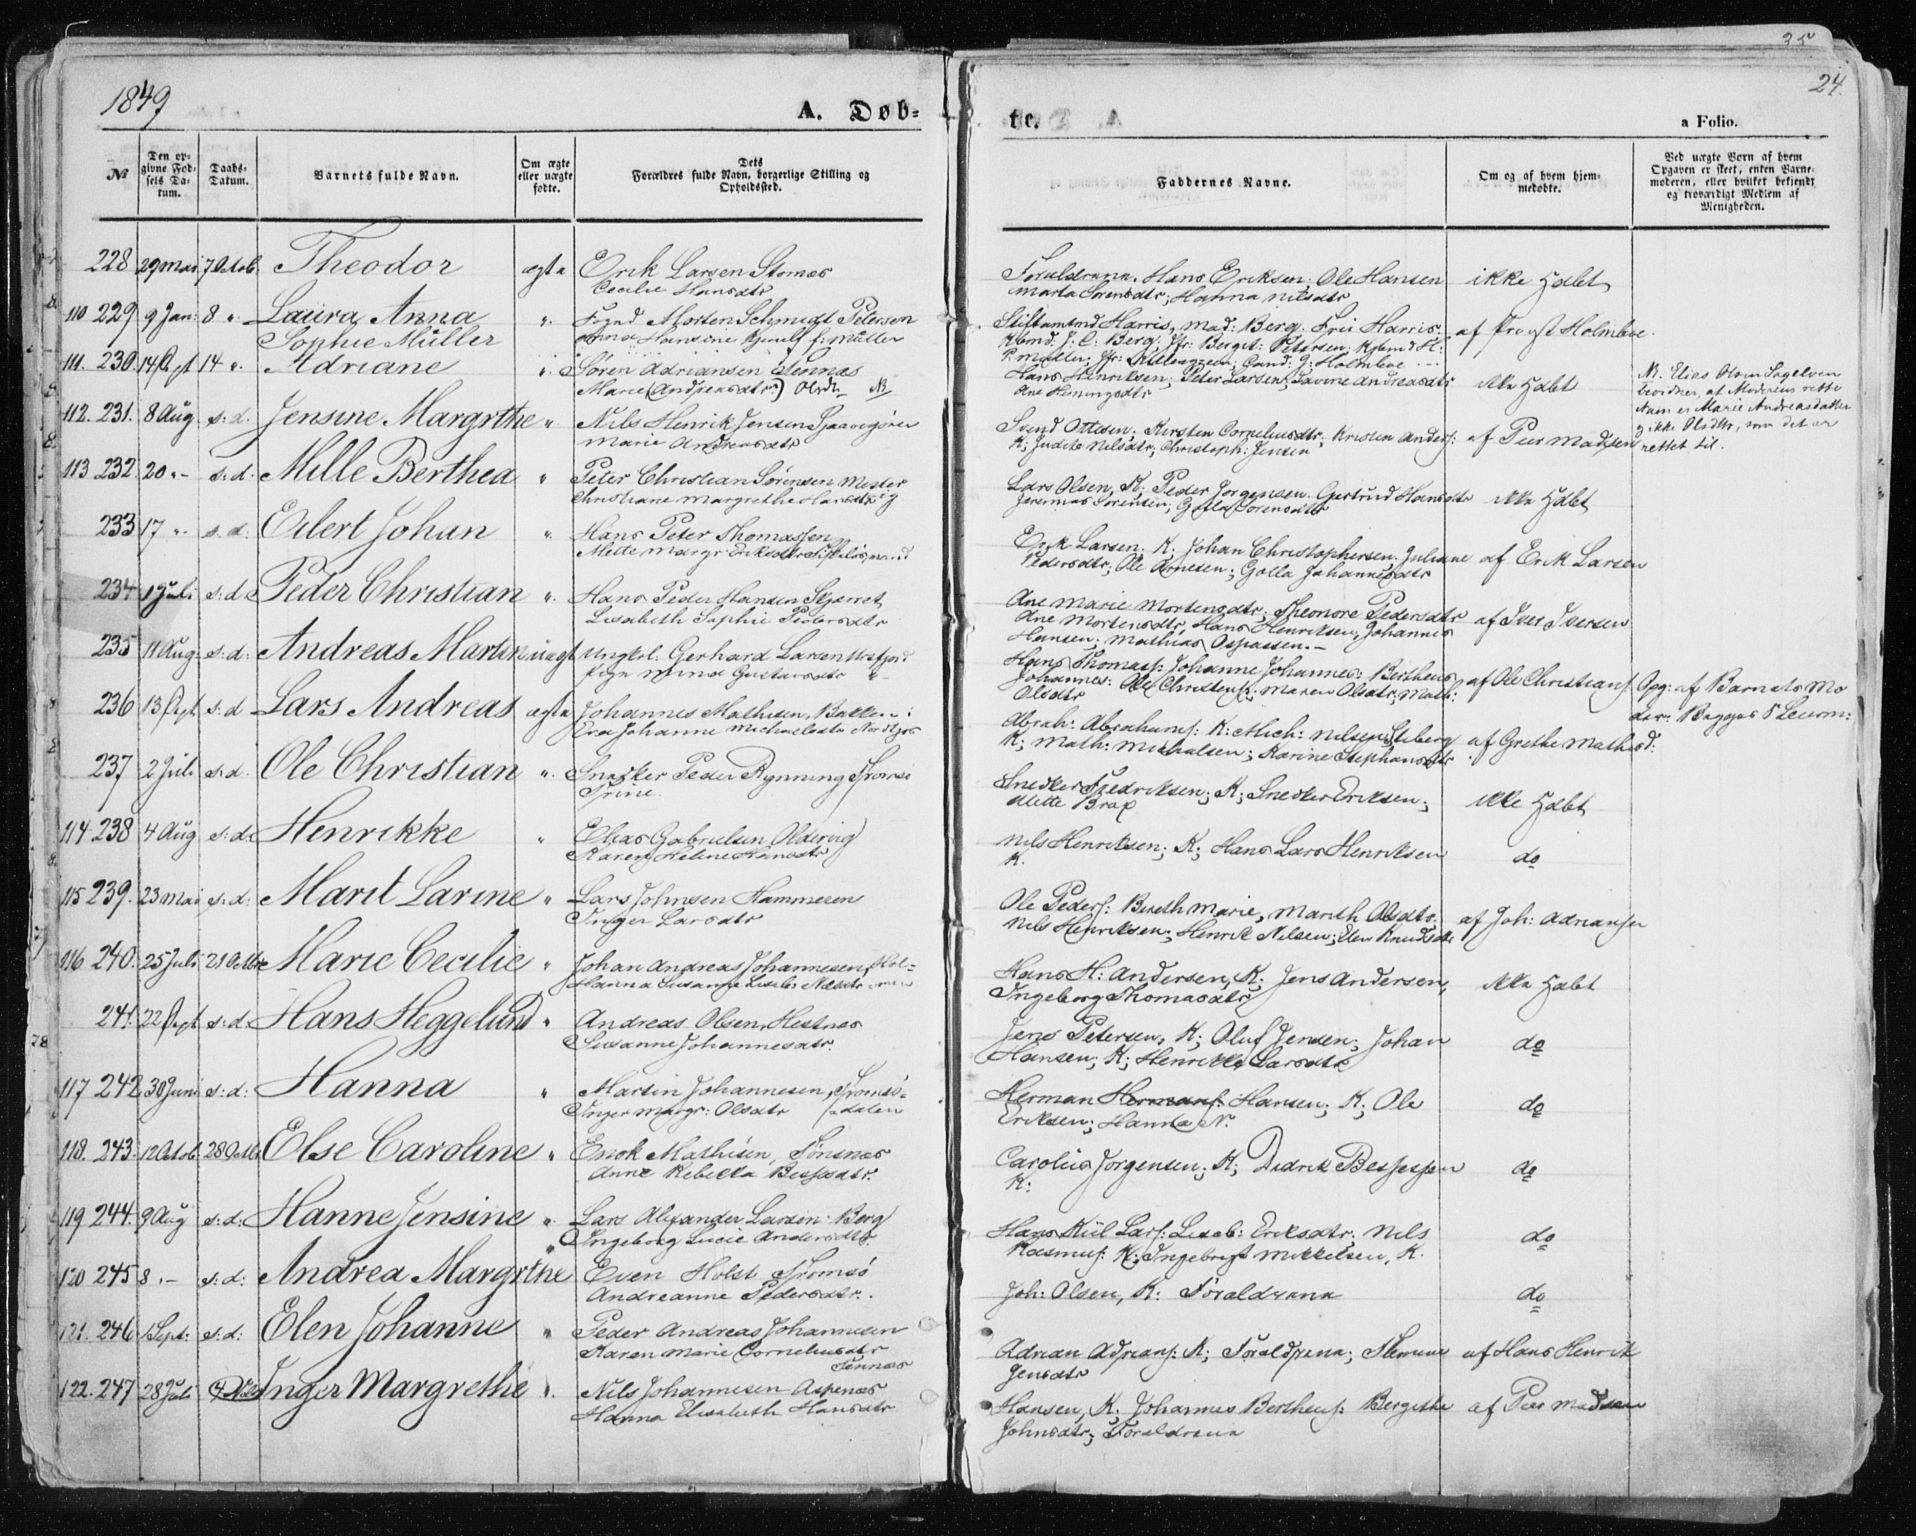 1849
A. Døb-
№
Den op-
givne Fød-
sels Da-
tum.
Daabs-
Datum.
Barnets fulde Navn.
Om ægte
eller uægte
fødte.
Dets
Forældres fulde Navn, borgerlige Stilling og
Opholdssted.
228 29 Mai 7 Octob. Theodor ægte Erik Larsen Stornæs
Cecilie Hansdtr
110 229 9 Jan: 8 " Laura Anna " Foged Morten Schmidt Petersen
Sophie Müller Hansine f: Müller
111. 230 14 Sept 14 " Adriane " Søren Adriansen Tennæs
Marie (Andreasdtr) Olsdtr NB
112. 231. 8 Aug s: d. Jensine Margrthe " Nils Henrik Jensen
Marie Andreasdtr
113 232 20 " s: d: Mille Berthea " Peter Christian Sørensen Mester
Christiane Margrethe Hansdtr
233 17 " s. d: Eilert Johan " Hans Peter Thomassen
Mette Margr Eriksdtr
234 1 Juli s: d Peder Christian " Hans Peder Hansen Skjæret
Lisabeth Sophie Pedersdtr
235 11 Aug: s: d: Andreas Martin uægt Ungkrl: Gerhard Larsen Ursfjord
Pige Mina Gustavsdtr "
236 13 Sept s: d Lars Andreas ægte Johannes Mathisen, Bakken i
Eva Johanne Michaelsdtr
237 2 Juli s: d. Ole Christian " Snedker Peder Rynning Tromsø
Trine.
114 238 4 Aug s: d: Henrikke " Elias Gabrielsen Oldervig
Karen Heline Hansdtr
115 239. 23 Mai s: d: Marit Larine " Lars Johnsen Hammeren
Inger Larsdtr
116 240 25 Juli 21 Octbr Marie Cecilie " Johan Andreas Johannesen, Hol=
Hanna Susanne Nilsdtr men
241. 22 Sept s: d: Hans Heggelund " Andreas Olsen, Hestnæs
Susanne Johannesdtr.
117 242 30 Juni s: d: Hanna " Martin Johannesen, Tromsø=
Inger Margr: Olsdtr dalen
118. 243. 12 Octob. 28 Octbr Else Caroline " Enok Mathisen, Tønsnæs
Anne Rebekka Bessesdtr.
119 244. 9 Aug s: d: Hanne Jensine " Lars Alexander Larsen Berg
Ingeborg Lucie Andersdtr
120 245 8 " s: d: Andrea Margrthe " Even Holst Tromsø
Andreanne Pedersdtr.
121. 246 1 Sept: s: d: Elen Johanne " Peder Andreas Johannesen
Karen Marie Corneliusdtr
Tennæs
122. 247 28 Juli Inger Margrethe " Nils Johannesen Aspenæs
Hanna Elisabeth Hansdtr
35
24.
te.
a Folio.
Faddernes Navne.
Om og af hvem hjem-
medøbte.
Ved uægte Børn af hvem
Opgaven er skeet, enten Barne-
moderen, eller hvilket bekjendt
og troværdigt Medlem af
Menigheden.
Foraldrene. Hans Eriksen; Ole Hansen ikke Hdøbt
Marta Sørensdtr; Hanna Nilsdtr
Stiftamtmd Harris, Mad: Berg. Frü Harris. af Provst Holmboe.
Kjbmd: J: C: Berg; Jfr: Berget: Petersen; Kjbmd H:
P: Müller; Cand: J: Holmboe
Hans Henriksen; Peter Larsen; Andreasdtr ikke Hdøbt
Ane Henningsdtr
NB. Elias Olsen Sagelven
bevidner, at Moderens rette
Navn er Marie Andreasdatter
og ikke Olsdtr, som det er
rettet til.
Svend Ottesen. Kirsten Corneliusdtr; Kristen Anders: af Peer Madsen
K; Judith Nilsdtr; Christoph: Jensen
Lars Olsen, K; Peder Jørgensen. Gertrud Hansdtr ikke Hdøbt
Jeremias Sørensen; Golla Sørensdtr
Erik Larsen. K; Johan Christophersen. Juliane af Erik Larsen
Pedersdtr; Ole Arnesen; Golla Johannesdtr
Ane Marie Mortensdtr; Theonore Pedersdtr af Iver Iversen
Ane Mortensdtr, Hans Henriksen, Johannes
Hansen; Mathias Espassen.
Hans Thomass: Johanne Johannes: Berthens af Ole Christians: Opg: af Barnets Mo
Johannes: Ole Christens: Maren Olsdtr; Math: der: Bygges Vidnesm:
Olsdtr
Abrah: Abrahams: K: Mich: Nilsen Stiberg af Grethe Mathisd:
K; Math: Michalsen; Karine Stephansdtr
Snedker Fredriksen; K; Snedker Eriksen; ikke Hdøbt
Mette Brox
Nils Henriksen; K; Hans Lars Henriksen do
K.
Ole Peders: Bereth Marie, Marith Olsdtr. af Joh: Adriansen
Nils Henriksen; Henrik Nilsen; Elen Knudsdtr
Hans H: Andersen, K; Jens Andersen, ikke Hdøbt
Ingeborg Thomasdtr
Jens Petersen, K; Oluf Jensen; Johan do
Hansen; K; Henrikke Larsdtr
Herman Hermans: Hansen; K; Ole do
Eriksen; Hanna N.
Carolius Jørgensen; K; Didrik Bessesen do
K:
Hans Kiil Lars: Liseb: Eriksdtr; Nils do
Rasmus: K; Ingebrigt Mikkelsen, K.
Joh: Olsen, K: Foraldrene do
Adrian Adrians: K; Foraldrene; af Hans Henrik
Jensdtr
Hansen, K. Johannes Berthens: Bergithe af Peer Madsen
Johnsdtr; Foraldrene